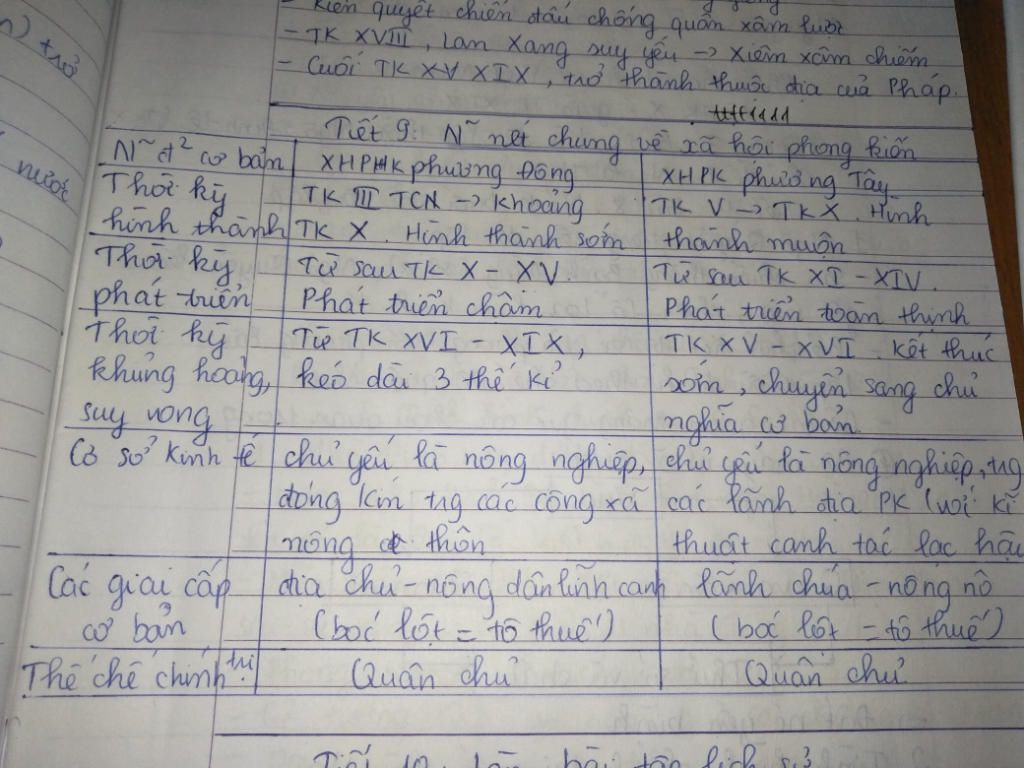 n) trở
nước
- Kiên quyết chiến đấu chống quân xâm lược
- TK XVIII, Lan Xang suy yếu → Xiêm xâm chiếm
- Cuối TK XV XIX, trở thành thuộc địa của Pháp.
Tiết 9: N~ nét chung về xã hội phong kiến
N~ đ² cơ bản | XHPHK phương Đông | XHPK phương Tây
Thời kỳ | TK III TCN → Khoảng | TK V → TK X. Hình
hình thành | TK X. Hình thành sớm | thành muộn
Thời kỳ | Từ sau TK X - XV. | Từ sau TK XI - XIV.
phát triển | Phát triển chậm | Phát triển toàn thịnh
Thời kỳ | Từ TK XVI - XIX, | TK XV - XVI. Kết thúc
khủng hoảng, | kéo dài 3 thế kỉ | sớm, chuyển sang chủ
suy vong | nghĩa cơ bản
Cơ sở kinh tế | chủ yếu là nông nghiệp, | chủ yếu là nông nghiệp, trg
đóng kín trg các công xã | các lãnh địa PK (với kĩ
nông thôn | thuật canh tác lạc hậu
Các giai cấp | địa chủ - nông dân lĩnh canh | lãnh chúa - nông nô
cơ bản | (bóc lột = tô thuế) | (bóc lột = tô thuế)
Thế chế chính trị | Quân chủ | Quân chủ